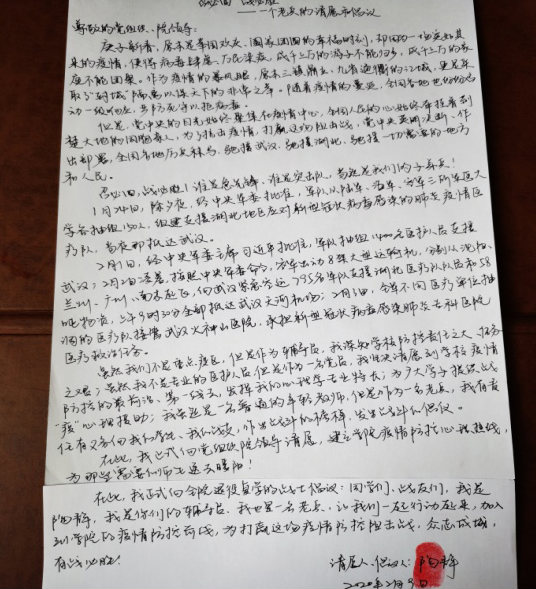 召必回 战必胜
——一个老兵的请愿和倡议
尊敬的党组织、院领导:
庚子新春,原本是举国欢庆、阖家团圆的幸福时刻,却因为一场突如其
来的疫情,使得病毒肆虐、万民染疫,成千上万的游子不能归乡,成千上万的家
庭不能团聚。作为疫情的暴风眼,原本三镇鼎立、九省通衢的江城,更是采
取了“封城”隔离以保天下的非常之举。随着疫情的蔓延,全国各地也纷纷启
动一级响应,严防死守以拒病毒。
但是,党中央的目光始终聚集在疫情中心,全国人民的心始终牵挂着荆
楚大地的同胞亲人,为了抗击疫情,打赢这场阻击战,党中央英明决断,作
出部署,全国各地厉兵秣马,驰援武汉,驰援湖北,驰援一切需要的地方
和人民。
召必回,战必胜!谁是急先锋,谁是突击队,当然是我们的子弟兵!
1月24日,除夕夜,经中央军委批准,军队从陆军、海军、空军三所军医大
学各抽组150人,组建支援湖北地区应对新型冠状病毒感染的肺炎疫情医
疗队,当夜即抵达武汉。
2月1日,经中央军委主席习近平批准,军队抽组1400名医护人员支援
武汉;2月2日凌晨,按照中央军委命令,空军出动8架大型运输机,分别从沈阳、
兰州、广州、南京起飞,向武汉紧急空运795名军队支援湖北医疗队队员和58
吨物资,上午9时30分全部抵达武汉天河机场;2月3日,含各不同医疗单位抽
调的医疗队接管武汉火神山医院,承担新型冠状病毒感染肺炎专科医院
医疗救治任务。
虽然我们不是重点疫区,但是作为辅导员,我深知学校防控责任之大、任务
之艰;虽然我不是专业的医护人员,但是作为一名党员,我坚决请愿到学校疫情
防控的最前沿、第一线去,发挥我的心理学专业特长,为广大学子提供战
“疫”心理援助;我虽然是一名普通的年轻教师,但是作为一名老兵,我有责
任有义务向我的学生、我的战友,作出战斗的榜样,发出战斗的倡议。
在此,我正式向党组织院领导请愿,建立学院疫情防控心理热线,
为那些需要的师生送去暖阳!
在此,我正式向全院退役复学的战士倡议:同学们,战友们,我是
陶静,我是你们的辅导员,我也是一名老兵,让我们一起行动起来,加入
到学院的疫情防控前线,为打赢这场疫情防控阻击战,众志成城,
有战必胜!
请愿人、倡议人:陶静
2020年2月3日